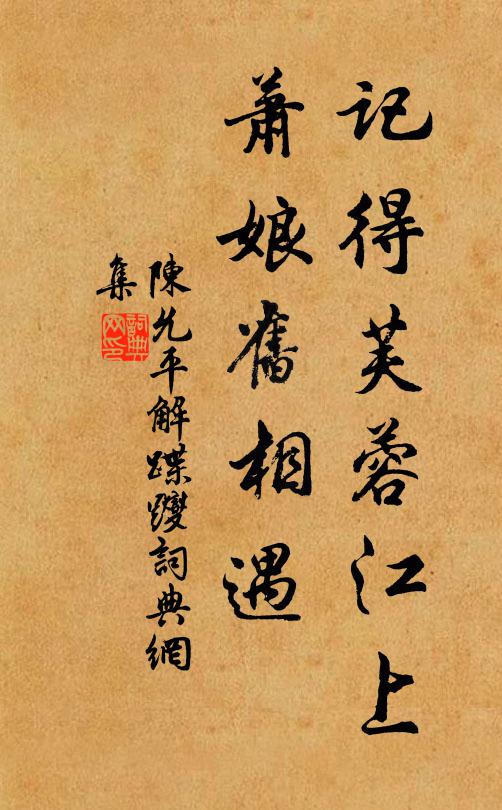 記得芙蓉江上
蕭娘舊相遇
陳允平解蹀躞詞典網
集
詞典網印